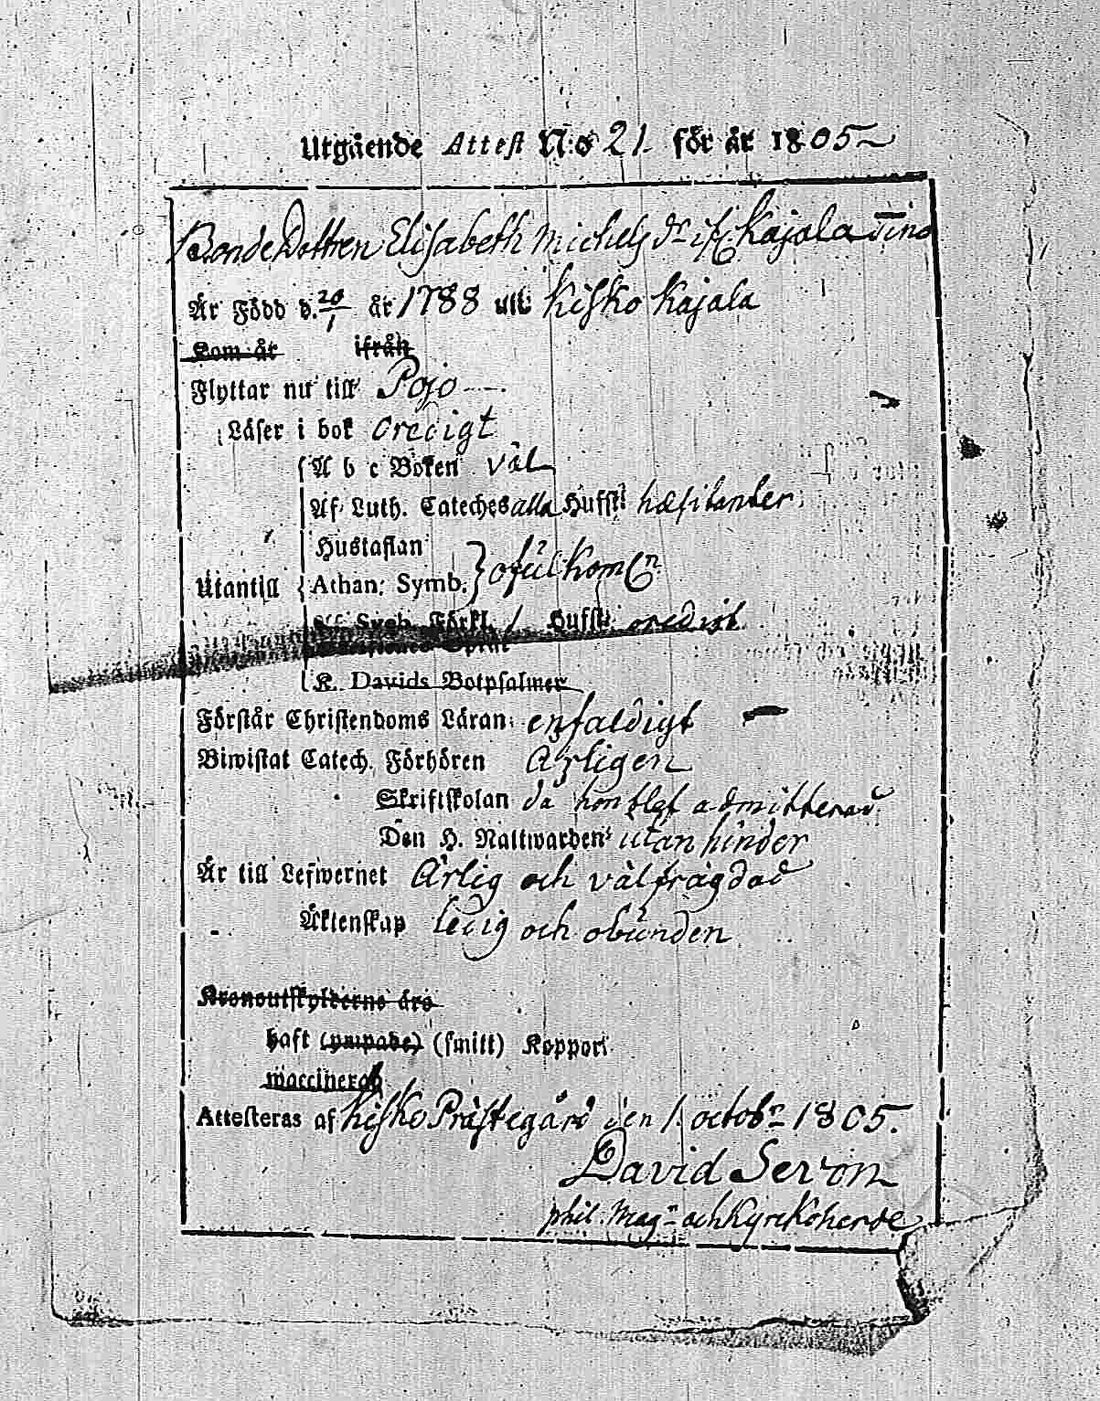 Utgående Attest N:o 21. för år 1805
BondeDottren Elisabeth Michels dr if. Kajala
Är Född d. 20/1 år 1788 uti Kisko Kajala
Som är ifrån
Flyttar nu till Pojo
Läser i bok oredigt
A b c Boken väl
Af Luth. Cateches alla Hufst: hæsitanter
Hustaflan
Utantill Athan: Symb. ofulkoml:n
Sveb. Förkl. 1 Hufst: oredigt
K. Davids Botpsalmer
Förstår Christendoms Läran enfaldigt
Biwistat Catech. Förhören Årligen
Skriftskolan då hon blef admitterad
Den H. Nattwarden utan hinder
Är till Lefwernet Ärlig och välfrägdad
Äktenskap ledig och obunden
Kronoutskylderne äro
haft (ympade) (smitt) Koppor
waccinerad
Attesteras af Kisko Prästegård den 1. octobr 1805.
David Servon
phil. Mag:r och Kyrkoherde